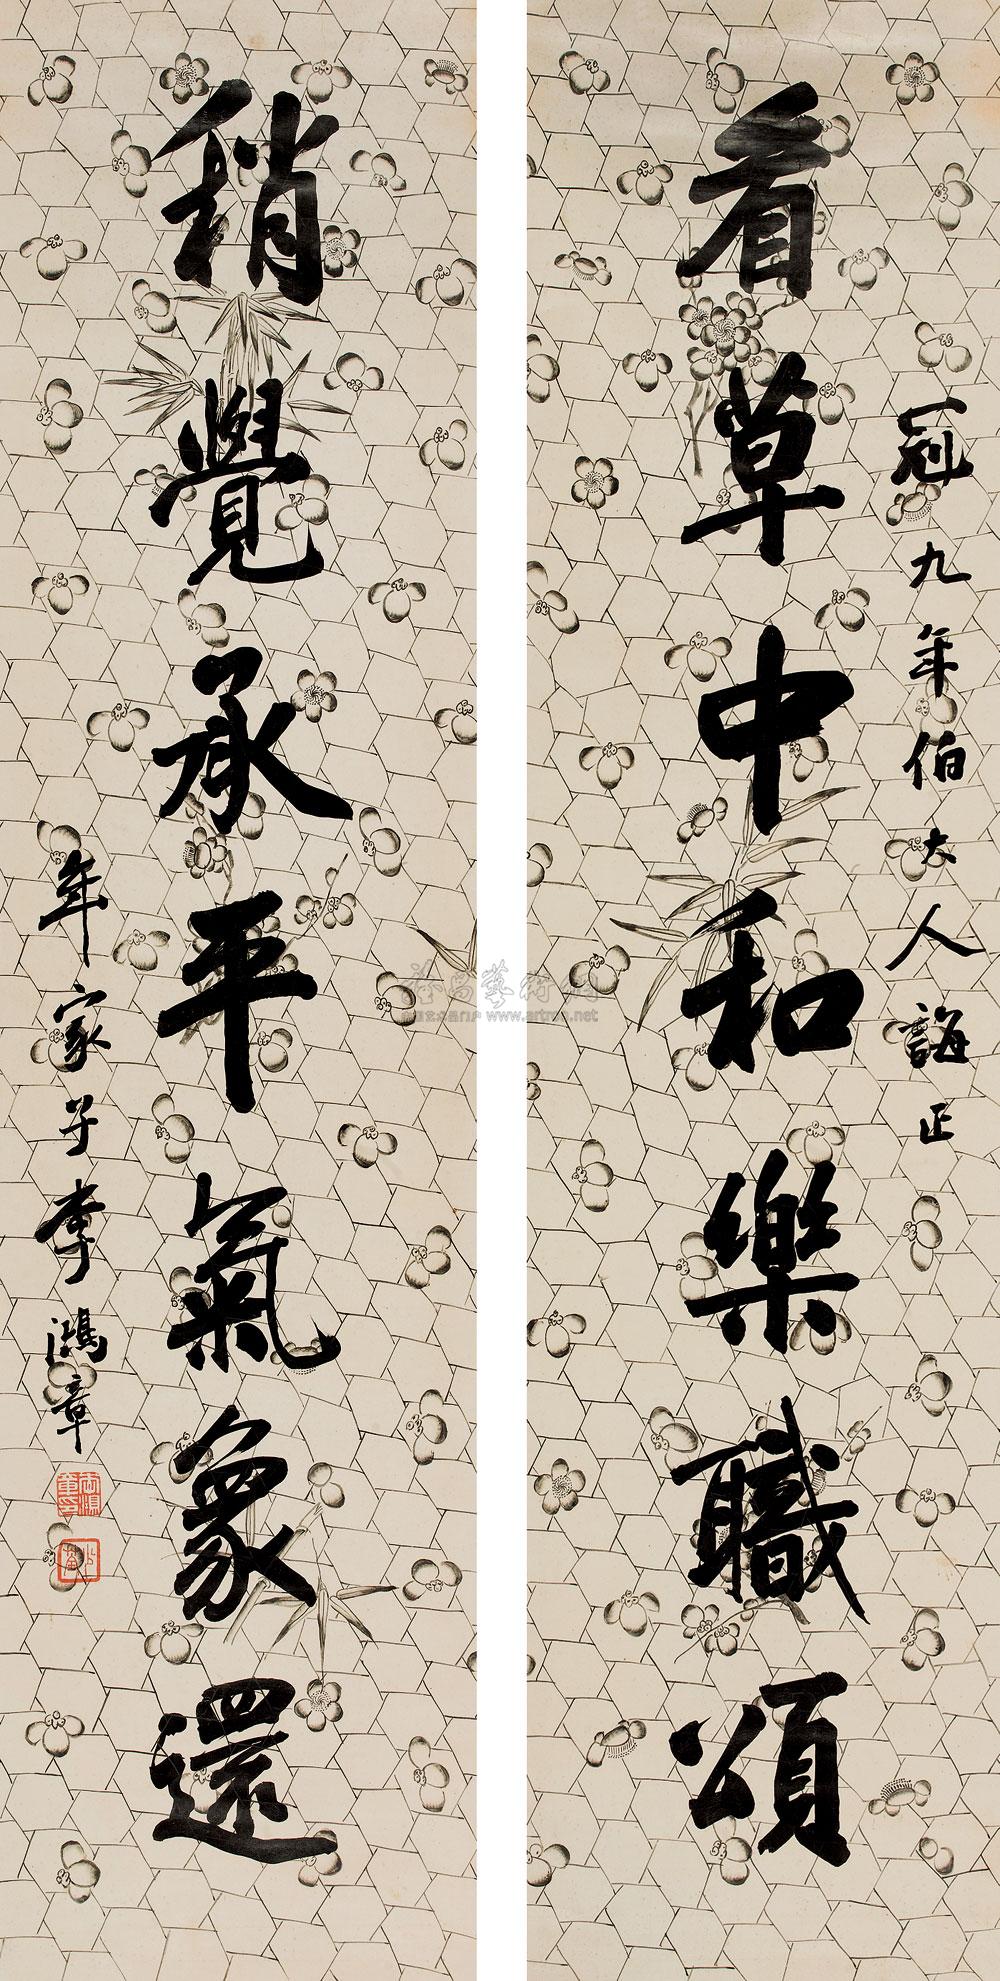 冠九年伯大人誨正
看草中和樂職頌
稍覺承平氣象還
年家子李鴻章
www.artron.net